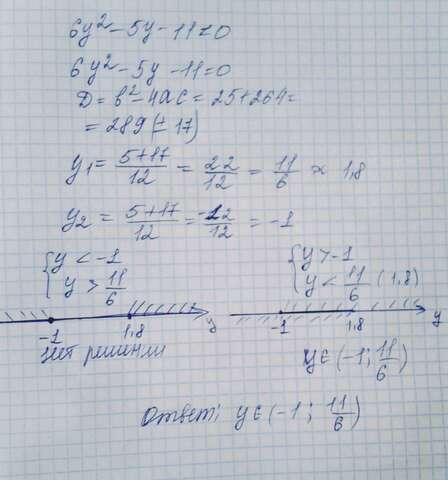 6y² - 5y - 11 < 0
6y² - 5y - 11 = 0
D = b² - 4ac = 25 + 264 =
= 289 (± 17)
y₁ = (5+17)/12 = 22/12 = 11/6 ≈ 1,8
y₂ = (5+17)/12 = -12/12 = -1
{ y < -1
y > 11/6
-1 1,8 y
нет решений
{ y > -1
y < 11/6 (1,8)
-1 1,8 y
y ∈ (-1; 11/6)
Ответ: y ∈ (-1; 11/6)